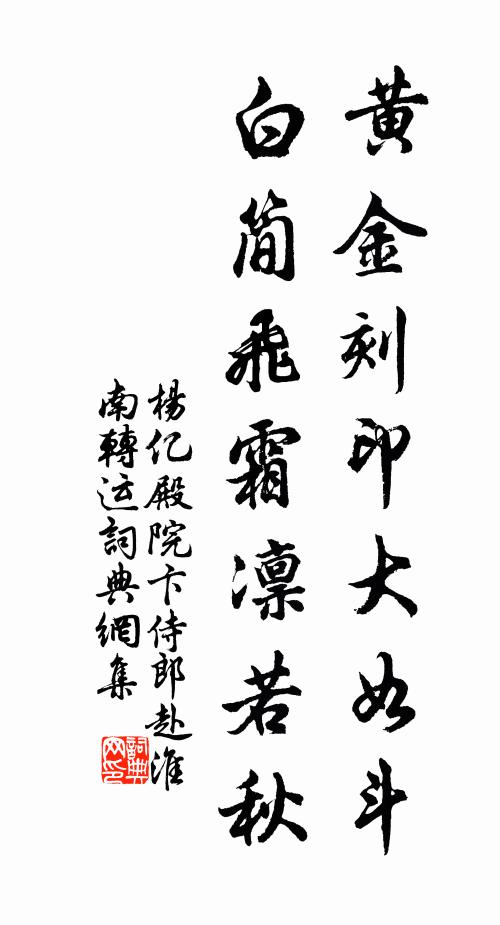 黄金刻印大如斗
白简飛霜凛若秋
楊亿殿院卞侍郎赴淮
南轉运詞典網集
詞典
网印